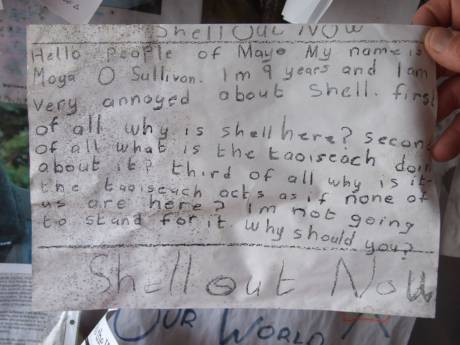 Shell Out Now
Hello People of Mayo My name is
Moya O Sullivan. Im 9 years and I am
very annoyed about Shell. first
of all why is shell here? Second
of all what is the taoiseach doin
about it? third of all why is it
the taoiseach acts as if none of
us are here? Im not going
to stand for it why should you?
Shell out Now
OUR WORLD